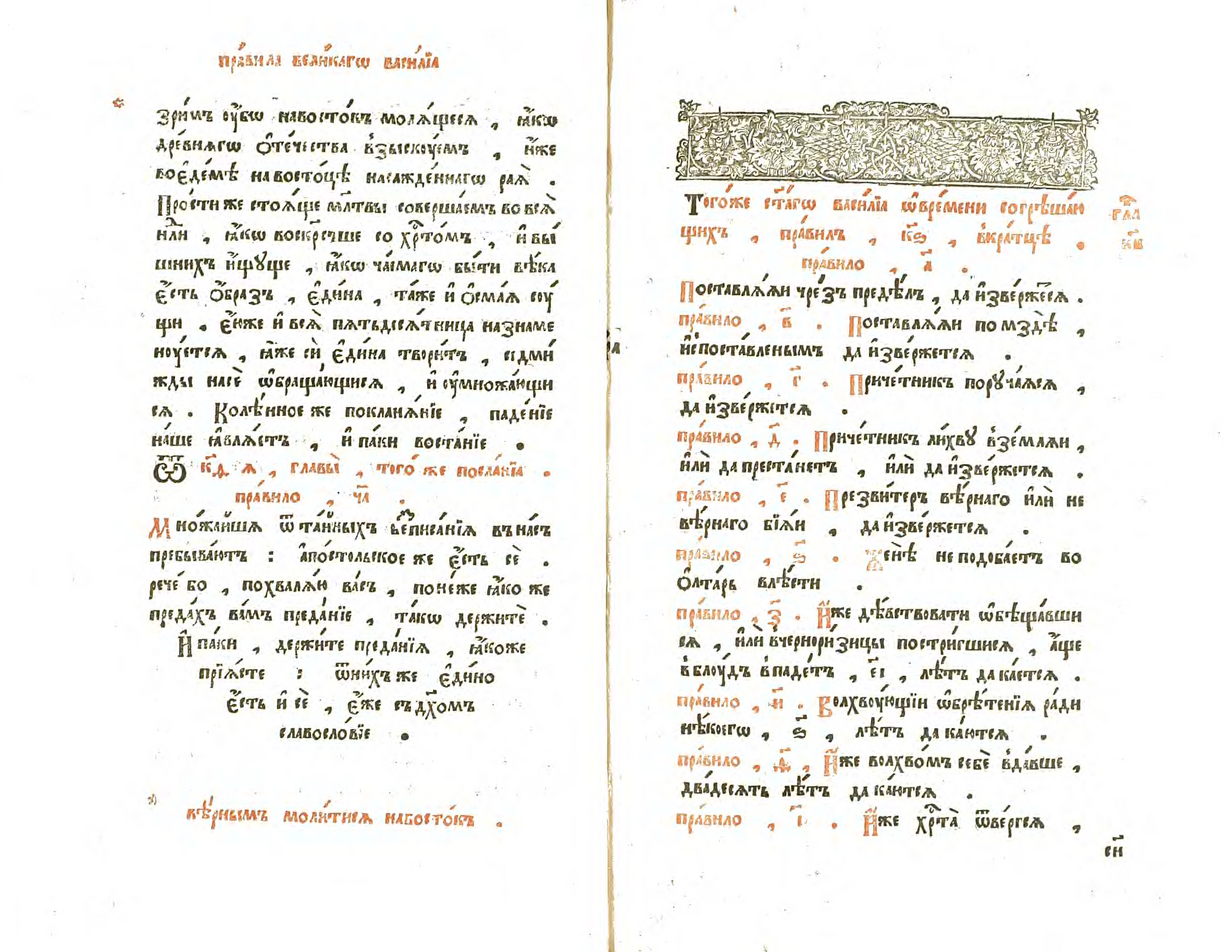 пра́вила вели́кагѡ васи́лїа
зри́мъ ᲂу҆́бѡ навосто́къ молѧ́щесѧ , ꙗ҆́кѡ
дре́внѧгѡ ѻ҆те́чества взыскꙋ́емъ , и҆́же
воє҆де́мѣ навосто́цѣ насажде́ннагѡ раѧ̀ .
Про́стиже стоѧ́ще мл҃твы соверша́емъ во всѧ̀
дн҃и , ꙗ҆́кѡ воскре́сше со хрⷭ҇то́мъ , и҆ вы́
шнихъ и҆́щꙋще , ꙗ҆́кѡ ча́емагѡ бы́ти вѣ́ка
є҆́сть ѻ҆́бразъ , є҆ди́на , та́же и҆ ѻ҆сма́ѧ сꙋ́
щи . є҆ѧ́же и҆ всѧ̀ пѧтьдесѧ́тница назнаме
нꙋ́етсѧ , ꙗ҆́же си́ є҆ди́на твори́тъ , седми́
жды на се̑ ѡ҆браща́ющисѧ , и҆ ᲂу҆множа́ющи
сѧ . Колѣ́нное же поклонѧ́нїе , паде́нїе
на́ше ꙗ҆влѧ́етъ , и҆ па́ки воста́нїе .
Ѿ к҃д ѧ , главы̀ , того́ же посла́нїа .
пра́вило , ч҃а .
Мно́жайшаѧ ѿ та́йныхъ беꙁписа́нїѧ въ на́съ
пребыва́ютъ : а҆по́стольское же є҆́сть се̑ .
рече́ бо , похвалѧ́ю ва́съ , поне́же ꙗ҆́ко же
преда́хъ ва́мъ преда́нїе , та́кѡ держи́те .
И҆ па́ки , держи́те преда́нїѧ , ꙗ҆́коже
прїѧ́сте : ѿ ни́хъ же є҆ди́но
є҆́сть и҆ се̑ , є҆́же съ дх҃омъ
славосло́вїе .
вѣ́рнымъ моли́тисѧ навосто́къ .
Того́же ст҃а́гѡ васи́лїа ѡ҆ вре́мени согрѣша́ю
щихъ , пра́вилъ , к҃ѕ , вкра́тцѣ .
пра́вило , а҃ .
Поставлѧ́ѧи чре́зъ предѣ́лъ , да и҆зве́ржесѧ .
пра́вило , в҃ . Поставлѧ́ѧи по мздѣ̀ ,
испоста́вленымъ да и҆зве́ржетсѧ .
пра́вило , г҃ . Приче́тникъ порꙋча́ѧсѧ ,
да и҆зве́ржетсѧ .
пра́вило , д҃ . Приче́тникъ ли́хвꙋ взе́млѧи ,
и҆лѝ да преста́нетъ , и҆лѝ да и҆зве́ржетсѧ .
пра́вило , є҃ . Презви́теръ вѣ́рнаго и҆лѝ не
вѣ́рнаго бїѧ́и , да и҆зве́ржетсѧ .
пра́вило , ѕ҃ . женѣ̀ не подоба́етъ во
ѻ҆лта́рь влѣ́сти .
пра́вило , з҃ . И҆́же дѣ́вствовати ѡ҆бѣща́вши
сѧ , и҆лѝ в черно ри́зицы постри́гшисѧ , а҆́ще
в блꙋ́дъ впаде́тъ , є҃і , лѣ́тъ да ка́етсѧ .
пра́вило , и҃ . Волхвꙋ́ющїи ѡ҆брѣ́тенїѧ ра́ди
нѣ́коегѡ , ѕ҃ , лѣ́тъ да ка́ютсѧ .
пра́вило , ѳ҃ , И҆́же волхво́мъ себѐ вда́вше ,
два́десѧть лѣ́тъ да ка́ютсѧ .
пра́вило , і҃ . И҆́же хрⷭ҇та̀ ѿве́ргсѧ ,
гла
к҃в
сн҃